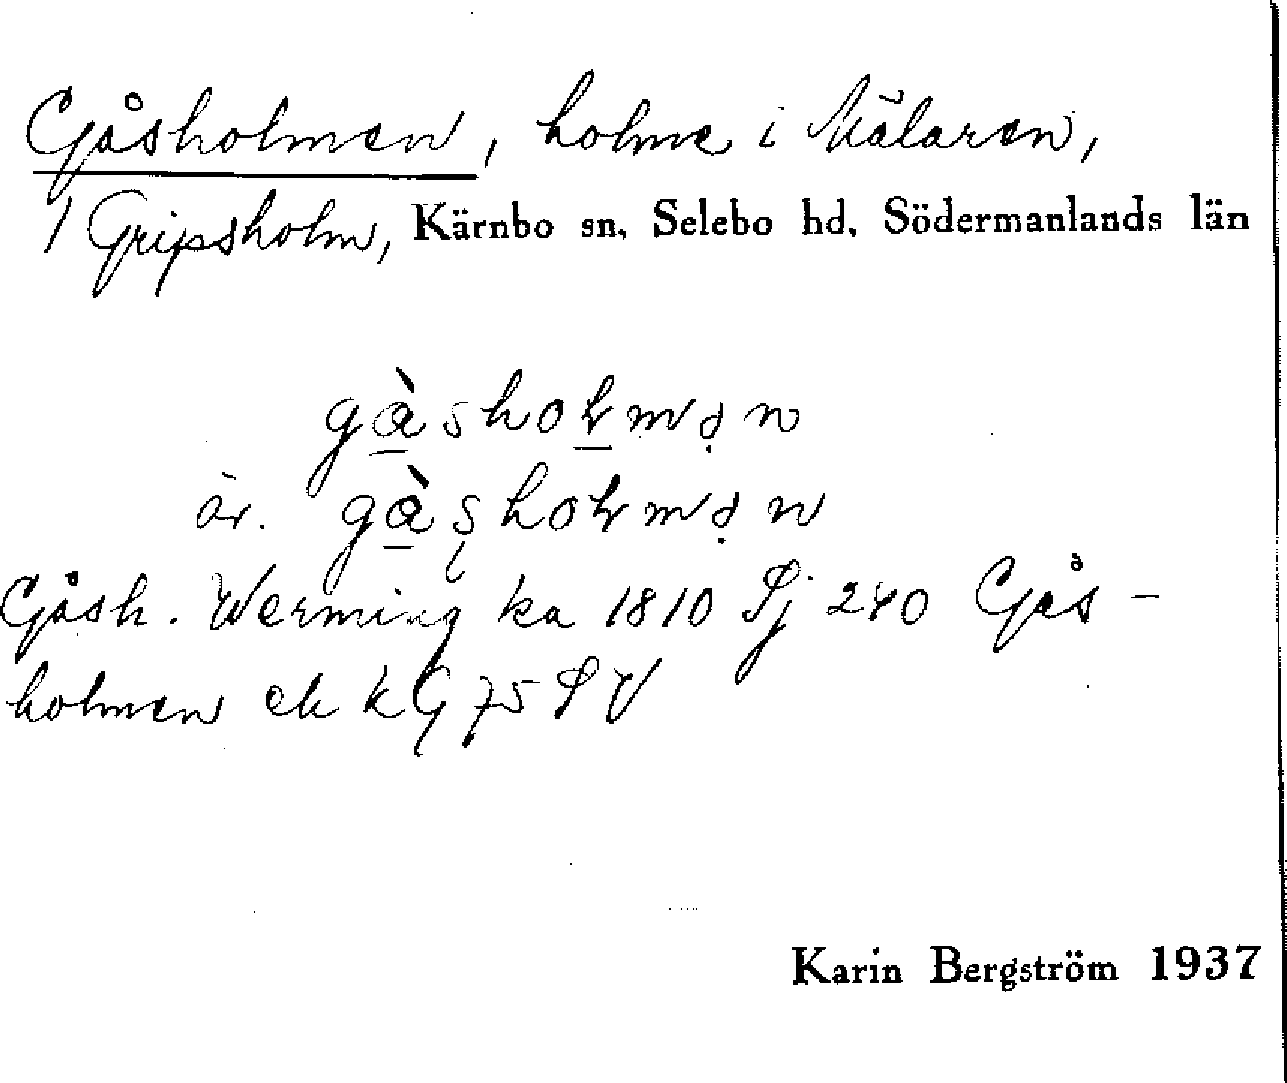 Gåsholmen, holme i Mälaren,
/ Gripsholm, Kärnbo sn. Selebo hd. Södermanlands län
gàshołmən
är. gàsholmən
Gåsh. Werming ka 1810 Sj 240 Gås-
holmen ek kG 75 SV
Karin Bergström 1937